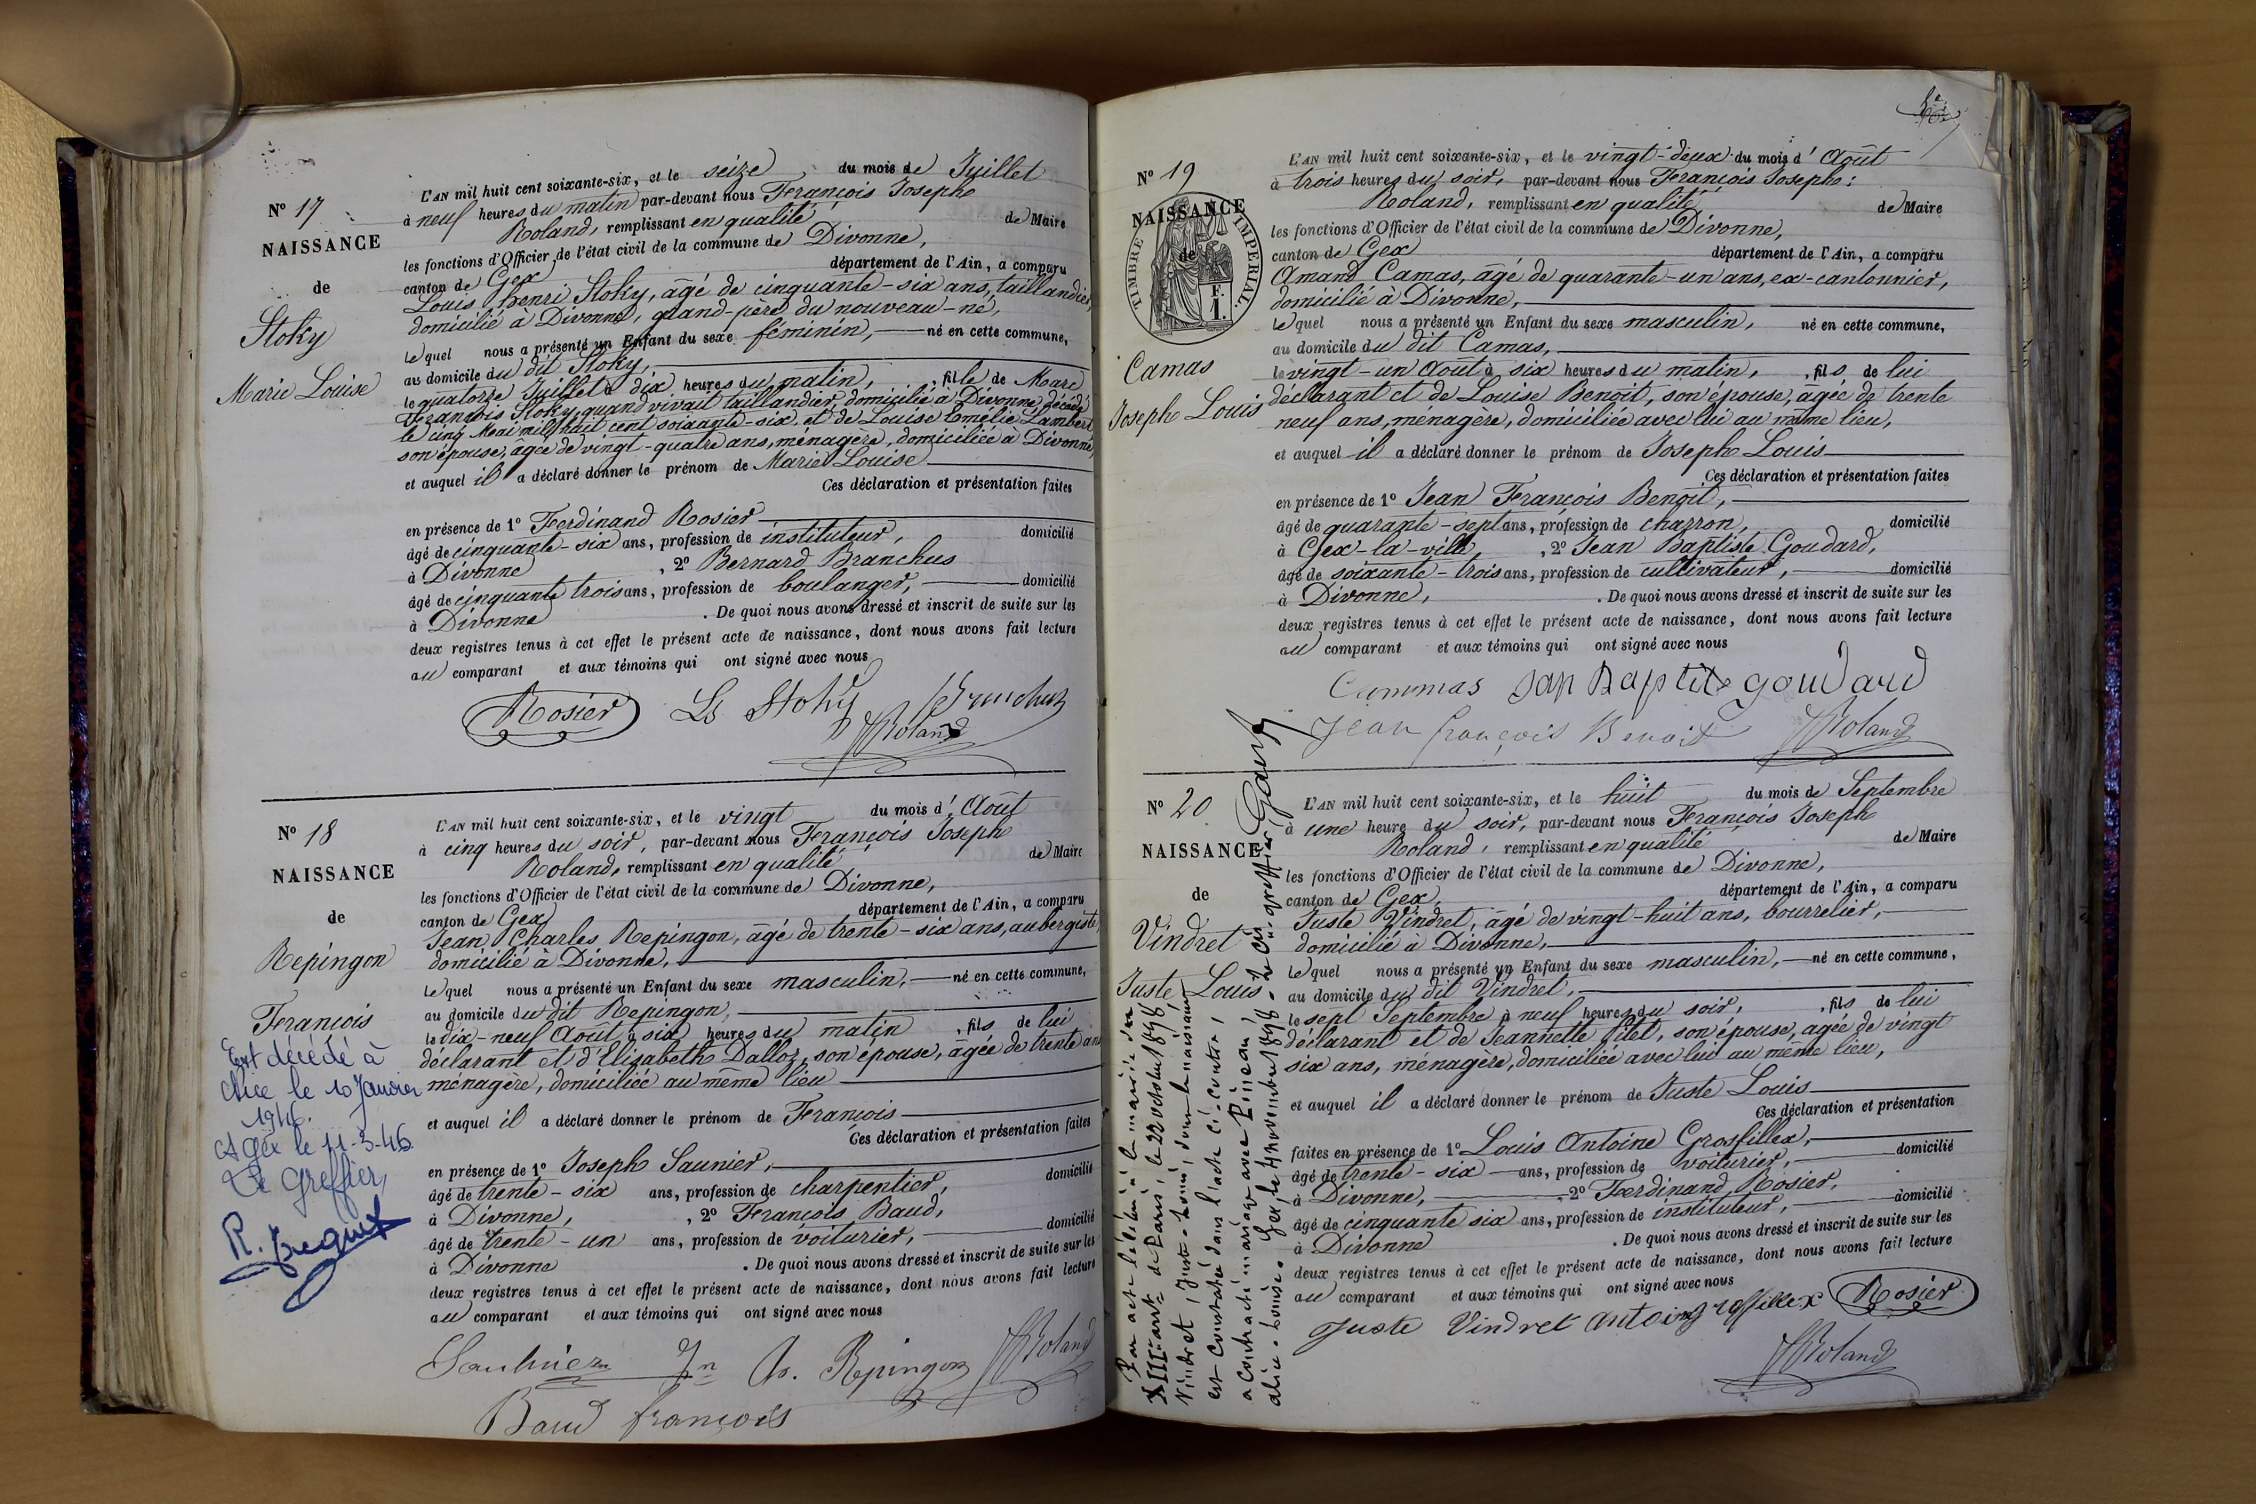 L'AN mil huit cent soixante-six, et le seize du mois de Juillet
à neuf heures du matin par-devant nous François Joseph
Roland, remplissant en qualité de Maire
les fonctions d'Officier de l'état civil de la commune de Divonne,
canton de Gex département de l'Ain, a comparu
Louis henri Stoky, âgé de cinquante-six ans, taillandier,
domicilié à Divonne, grand-père du nouveau-né,
Lequel nous a présenté un Enfant du sexe féminin, né en cette commune,
au domicile du dit Stoky,
le quatorze Juillet à dix heures du matin, fille de Marc
François Stoky, quand vivait taillandier, domicilié à Divonne, décédé
le cinq Mai mil huit cent soixante-six, et de Louise Emélie Lambert
son épouse, âgée de vingt-quatre ans, ménagère, domiciliée à Divonne,
et auquel il a déclaré donner le prénom de Marie Louise
Ces déclaration et présentation faites
en présence de 1° Ferdinand Rosier
âgé de cinquante-six ans, profession de instituteur, domicilié
à Divonne, 2° Bernard Branchus
âgé de cinquante trois ans, profession de boulanger, domicilié
à Divonne. De quoi nous avons dressé et inscrit de suite sur les
deux registres tenus à cet effet le présent acte de naissance, dont nous avons fait lecture
au comparant et aux témoins qui ont signé avec nous
N° 17
NAISSANCE
de
Stoky
Marie Louise
Rosier Ls Stoky Branchus
Roland
L'AN mil huit cent soixante-six, et le vingt du mois d' Août
à cinq heures du soir, par-devant nous François Joseph
Roland, remplissant en qualité de Maire
les fonctions d'Officier de l'état civil de la commune de Divonne,
canton de Gex département de l'Ain, a comparu
Jean Charles Repingon, âgé de trente-six ans, aubergiste,
domicilié à Divonne,
Lequel nous a présenté un Enfant du sexe masculin, né en cette commune,
au domicile du dit Repingon,
le dix-neuf Août à six heures du matin, fils de lui
déclarant et d'Elisabeth Dalloz, son épouse, âgée de trente ans
ménagère, domiciliée au même lieu
et auquel il a déclaré donner le prénom de François
Ces déclaration et présentation faites
en présence de 1° Joseph Saunier,
âgé de trente-six ans, profession de charpentier, domicilié
à Divonne, 2° François Baud,
âgé de trente-un ans, profession de voiturier, domicilié
à Divonne. De quoi nous avons dressé et inscrit de suite sur les
deux registres tenus à cet effet le présent acte de naissance, dont nous avons fait lecture
au comparant et aux témoins qui ont signé avec nous
N° 18
NAISSANCE
de
Repingon
François
Est décédé à
Nice le 10 Janvier
1946.
A Gex le 11-3-46
Le Greffier,
Saulnier Jn Ch. Repingon Roland
Baud françois
L'AN mil huit cent soixante-six, et le vingt-deux du mois d' Août
à trois heures du soir, par-devant nous François Joseph
Roland, remplissant en qualité de Maire
les fonctions d'Officier de l'état civil de la commune de Divonne,
canton de Gex département de l'Ain, a comparu
Amand Camas, âgé de quarante-un ans, ex-cantonnier,
domicilié à Divonne,
Lequel nous a présenté un Enfant du sexe masculin, né en cette commune,
au domicile du dit Camas,
le vingt-un Août à six heures du matin, fils de lui
déclarant et de Louise Benoit, son épouse, âgée de trente
neuf ans, ménagère, domiciliée avec lui au même lieu,
et auquel il a déclaré donner le prénom de Joseph Louis
Ces déclaration et présentation faites
en présence de 1° Jean François Benoit,
âgé de quarante-sept ans, profession de charron, domicilié
à Gex-la-ville, 2° Jean Baptiste Goudard,
âgé de soixante-trois ans, profession de cultivateur, domicilié
à Divonne, . De quoi nous avons dressé et inscrit de suite sur les
deux registres tenus à cet effet le présent acte de naissance, dont nous avons fait lecture
au comparant et aux témoins qui ont signé avec nous
N° 19
NAISSANCE
de
TIMBRE IMPERIAL.
Camas
Joseph Louis
Cammas Jan Baptite goudard
Jean françois Benoit Roland
L'AN mil huit cent soixante-six, et le huit du mois de Septembre
à une heure du soir, par-devant nous François Joseph
Roland, remplissant en qualité de Maire
les fonctions d'Officier de l'état civil de la commune de Divonne,
canton de Gex, département de l'Ain, a comparu
Juste Vindret, âgé de vingt-huit ans, bourrelier,
domicilié à Divonne,
Lequel nous a présenté un Enfant du sexe masculin, né en cette commune,
au domicile du dit Vindret,
le sept Septembre à neuf heures du soir, fils de lui
déclarant et de Jeannette Filet, son épouse, âgée de vingt
six ans, ménagère, domiciliée avec lui au même lieu,
et auquel il a déclaré donner le prénom de Juste Louis
Ces déclaration et présentation
faites en présence de 1° Louis Antoine Grosfillex,
âgé de trente-six ans, profession de voiturier, domicilié
à Divonne, 2° Ferdinand Rosier,
âgé de cinquante six ans, profession de instituteur, domicilié
à Divonne. De quoi nous avons dressé et inscrit de suite sur les
deux registres tenus à cet effet le présent acte de naissance, dont nous avons fait lecture
au comparant et aux témoins qui ont signé avec nous
N° 20
NAISSANCE
de
Vindret
Juste Louis
Par acte célébré à la mairie du
XIIIe arrt de Paris, le 22 octobre 1898,
Vindret, Juste-Louis, dont la naissance
est constatée dans l'acte ci-contre,
a contracté mariage avec Pineau,
alice-Louise. Gex, le 4 novembre 1898. Le greffier
Juste Vindret Antoine rosfillex Rosier
Roland